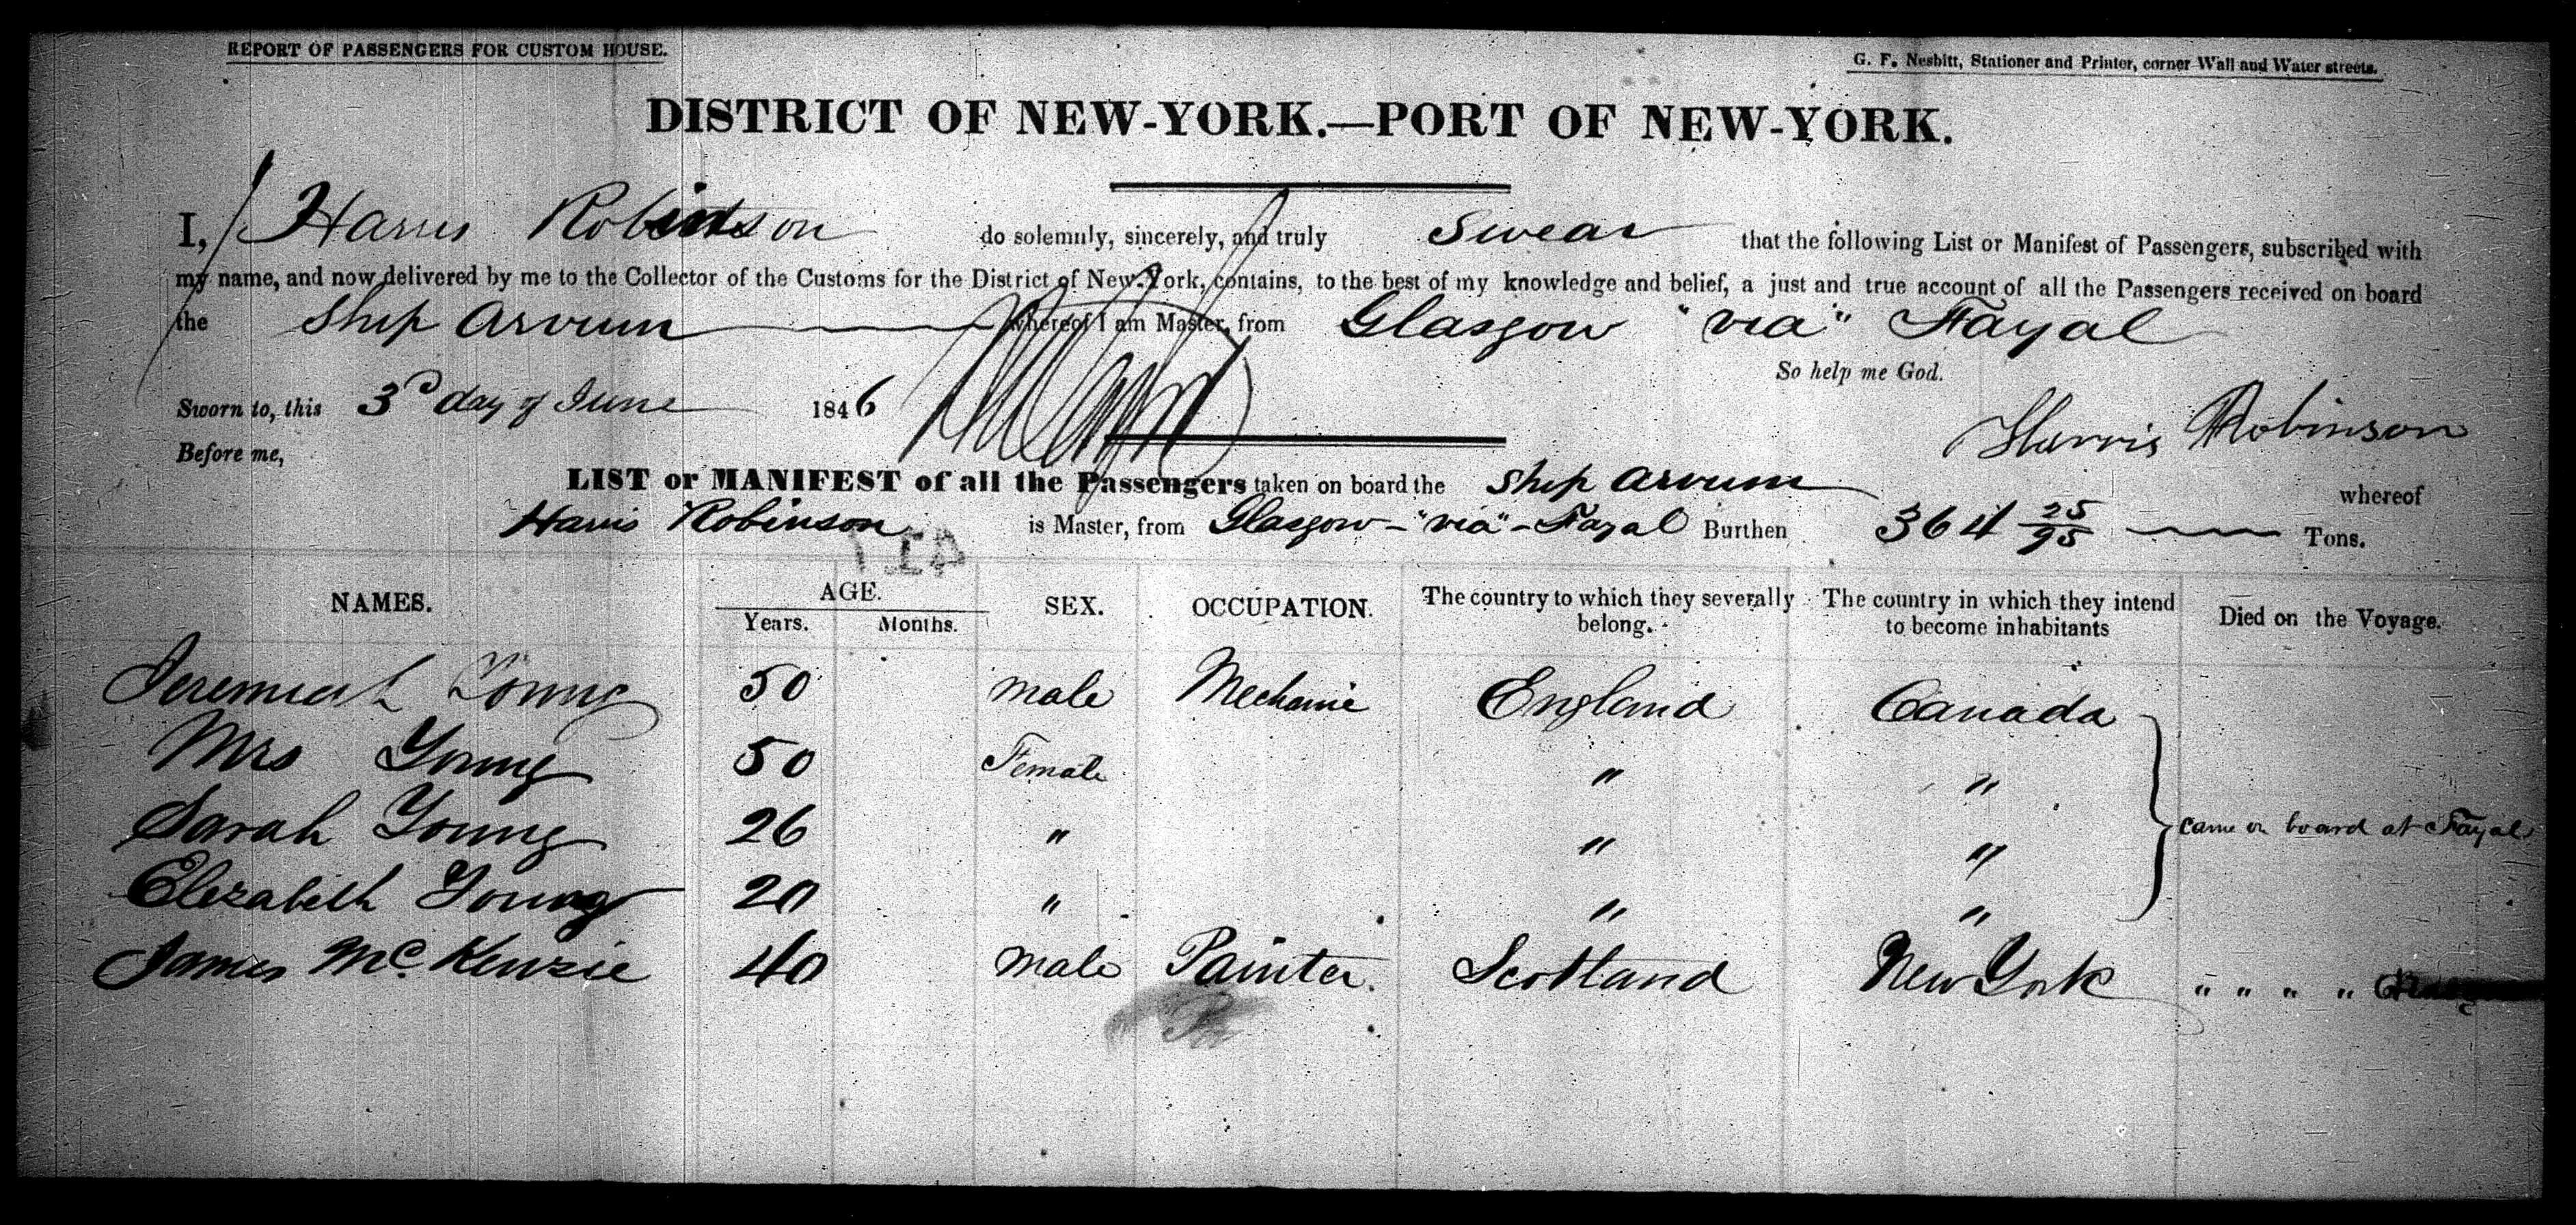 REPORT OF PASSENGERS FOR CUSTOM HOUSE.
G. F. Nesbitt, Stationer and Printer, corner Wall and Water streets.
DISTRICT OF NEW-YORK.—PORT OF NEW-YORK.
I, Harris Robinson do solemnly, sincerely, and truly Swear that the following List or Manifest of Passengers, subscribed with
my name, and now delivered by me to the Collector of the Customs for the District of New-York, contains, to the best of my knowledge and belief, a just and true account of all the Passengers received on board
the Ship Arvum whereof I am Master, from Glasgow "via" Fayal
So help me God.
Sworn to, this 3d day of June 1846
Harris Robinson
Before me,
LIST or MANIFEST of all the Passengers taken on board the Ship Arvum whereof
Harris Robinson is Master, from Glasgow - "via" - Fayal Burthen 364 25/95 Tons.
NAMES. AGE. SEX. OCCUPATION. The country to which they severally belong. The country in which they intend to become inhabitants Died on the Voyage.
Years. Months.
Jeremiah Young 50 male Mechanic England Canada
Mrs Young 50 Female " "
Sarah Young 26 " " " Came on board at Fayal
Elizabeth Young 20 " " "
James McKenzie 40 male Painter. Scotland New York " " " "